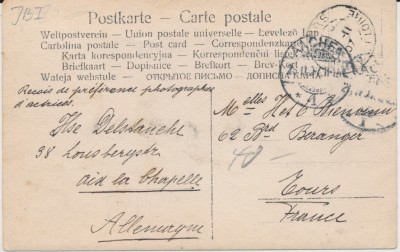 JBI
Postkarte – Carte postale
Weltpostverein – Union postale universelle – Levelező lap
Cartolina postale – Post card – Correspondenzkarte
Karta korespondencyjna – Korespondenční lístek
Briefkaart – Dopisnice – Brefkort – Brev-Kort
Wateja webstule – ОТКРЫТОЕ ПИСЬМО – ДОПИСНА
Recois de préférence photographies
d'actrices.
Ilse Delstanche
38 lousbergstr
aix la Chapelle
Allemagne
Melles H. et O.
62 Brd Beranger
Tours
France